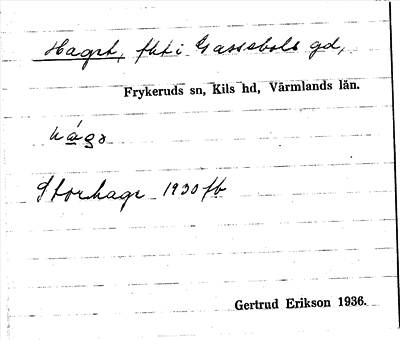 Hagrt, fht i Gassebols gd,
Frykeruds sn, Kils hd, Värmlands län.
hágɜ
Storhagr 1930 fb
Gertrud Erikson 1936.